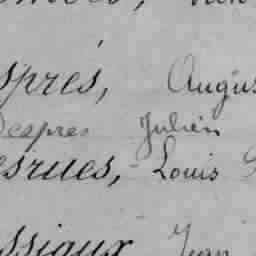 sprés, Augus
Despres Julien
esrues, Louis
ssiaux Jean